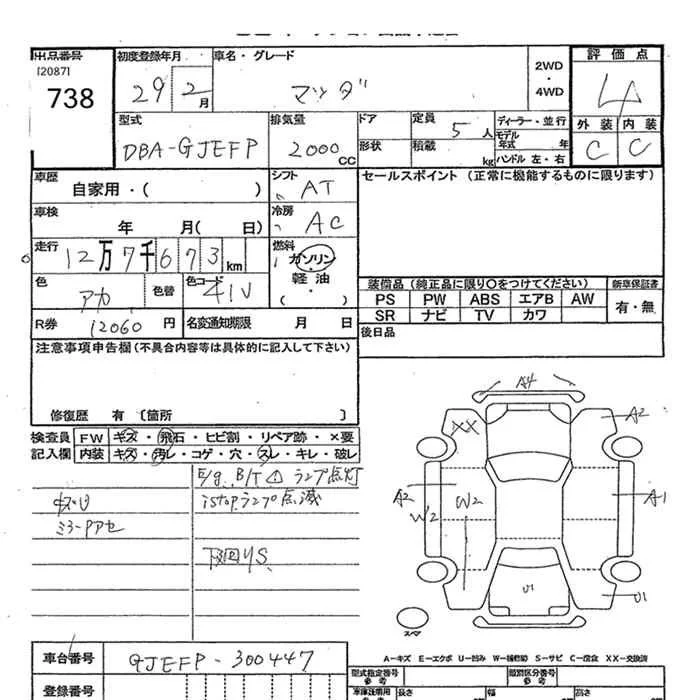 出品番号 初度登録年月 車名・グレード 2WD・4WD 評価点
[2087]
738 29 2月 マツダ 4
型式 排気量 ドア 定員 5人 ディーラー・並行 外装 内装
DBA-GJEFP 2000CC 形状 積載 kg モデル年式 年 C C
ハンドル 左・右
車歴 自家用・( ) シフト AT セールスポイント (正常に機能するものに限ります)
車検 年 月( 日) 冷房 AC
走行 12万7千673km 燃料 ガソリン・軽油・( )
色 アカ 色替 色コード 41V 装備品 (純正品に限り○をつけてください) 新車保証書
PS PW ABS エアB AW 有・無
R券 12060円 名変通知期限 月 日 SR ナビ TV カワ
注意事項申告欄 (不具合内容等は具体的に記入して下さい) 後日品
修復歴 有 [箇所 ]
A4
XX A2
検査員記入欄 FW キズ・飛石・ヒビ割・リペア跡・×要
内装 キズ・汚レ・コゲ・穴・スレ・キレ・破レ
E/g B/T ⚠ ランプ点灯
istopランプ点滅
ミラーPアセ
A2 W2 W2 A1
下回りS
U1 U1
スペア
車台番号 GJEFP-300447
A-キズ E-エクボ U-凹み W-補修跡 S-サビ C-腐食 XX-交換済
登録番号 型式指定番号 参考 類別区分番号 参考
長さ 幅 高さ